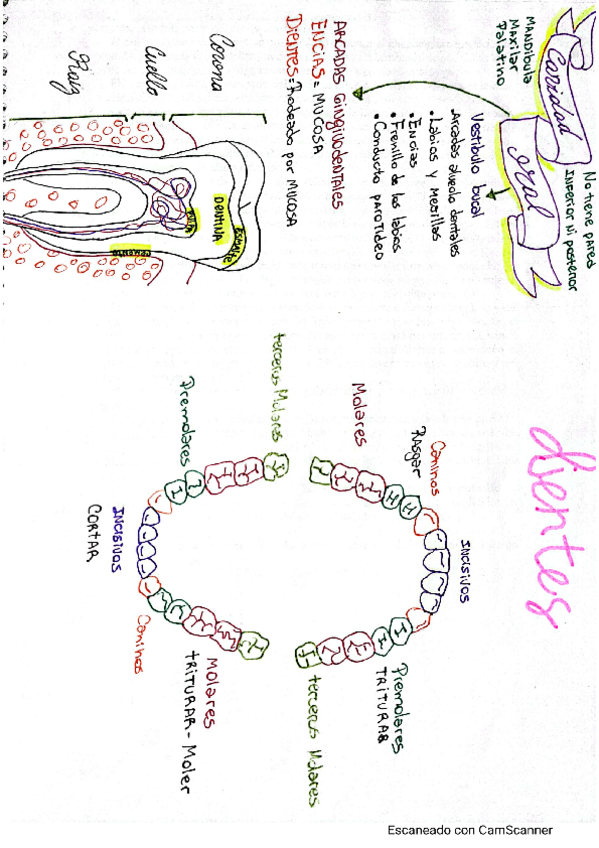 Cavidad
oral
No tiene pared
inferior ni posterior
MANDIBULA
Maxilar
Palatino
Vestíbulo bucal
Arcadas alveolo dentales
• Labios y mejillas
• Encias
• Frenillo de los labios
• Conducto parotideo
ARCADAS Gingivodentales
ENCIAS = MUCOSA
DIENTES = Rodeado por MUCOSA
Corona
Cuello
Raiz
ESMALTE
DENTINA
PULPA
dientes
INCISIVOS
Caninos
RASGAR
Premolares
TRITURAR
Molares
terceros Molares
terceros Molares
terceros Molares
Premolares
Molares
TRITURAR - Moler
Caninos
INCISIVOS
CORTAR
Escaneado con CamScanner